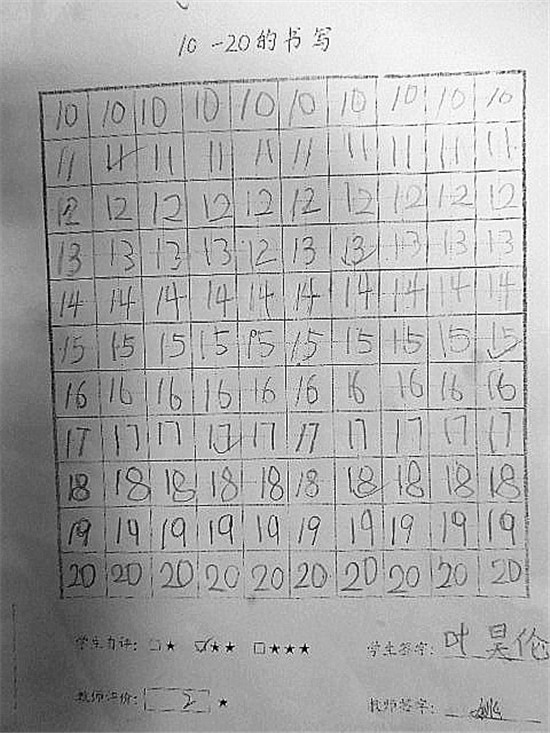 10-20的书写
10 10 10 10 10 10 10 10 10 10
11 11 11 11 11 11 11 11 11 11
12 12 12 12 12 12 12 12 12 12
13 13 13 13 12 13 13 13 13 13
14 14 14 14 14 14 14 14 14 14
15 15 15 15 15 15 15 15 15 15
16 16 16 16 16 16 16 16 16 16
17 17 17 17 17 17 17 17 17 17
18 18 18 18 18 18 18 18 18 18
19 19 19 19 19 19 19 19 19 19
20 20 20 20 20 20 20 20 20 20
学生自评: □★ ☑★★ □★★★ 学生签字: 叶昊伦
教师评价: 2 ★ 教师签字: 姚